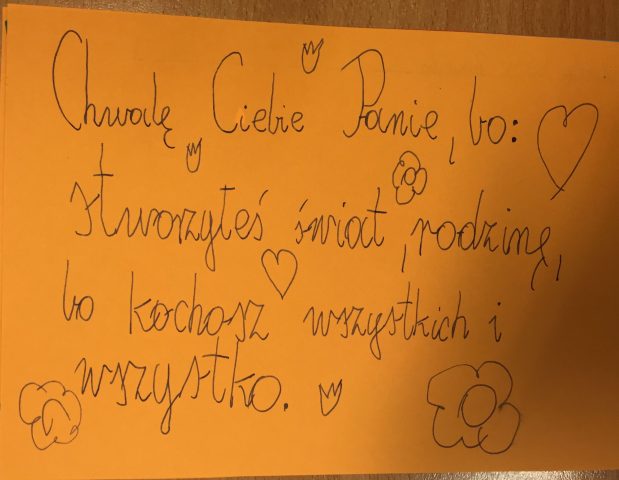 Chwalę Ciebie Panie, bo:
stworzyłeś świat, rodzinę,
bo kochasz wszystkich i
wszystko.